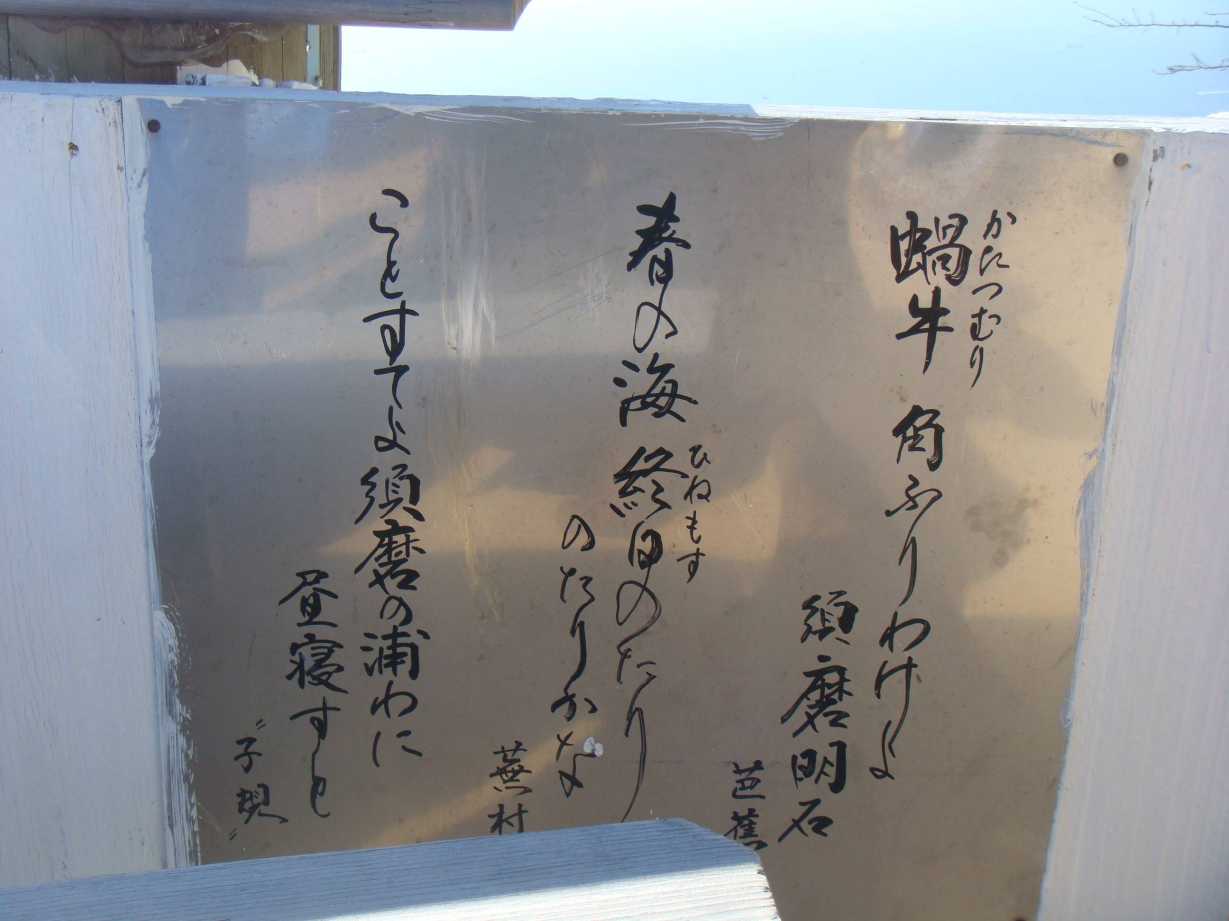 かたつむり
蝸牛 角ふりわけよ
須磨明石
芭蕉
春の海 終日のたり
ひねもす
のたりかな
蕪村
ことすてよ須磨の浦わに
昼寝すと
"子規"